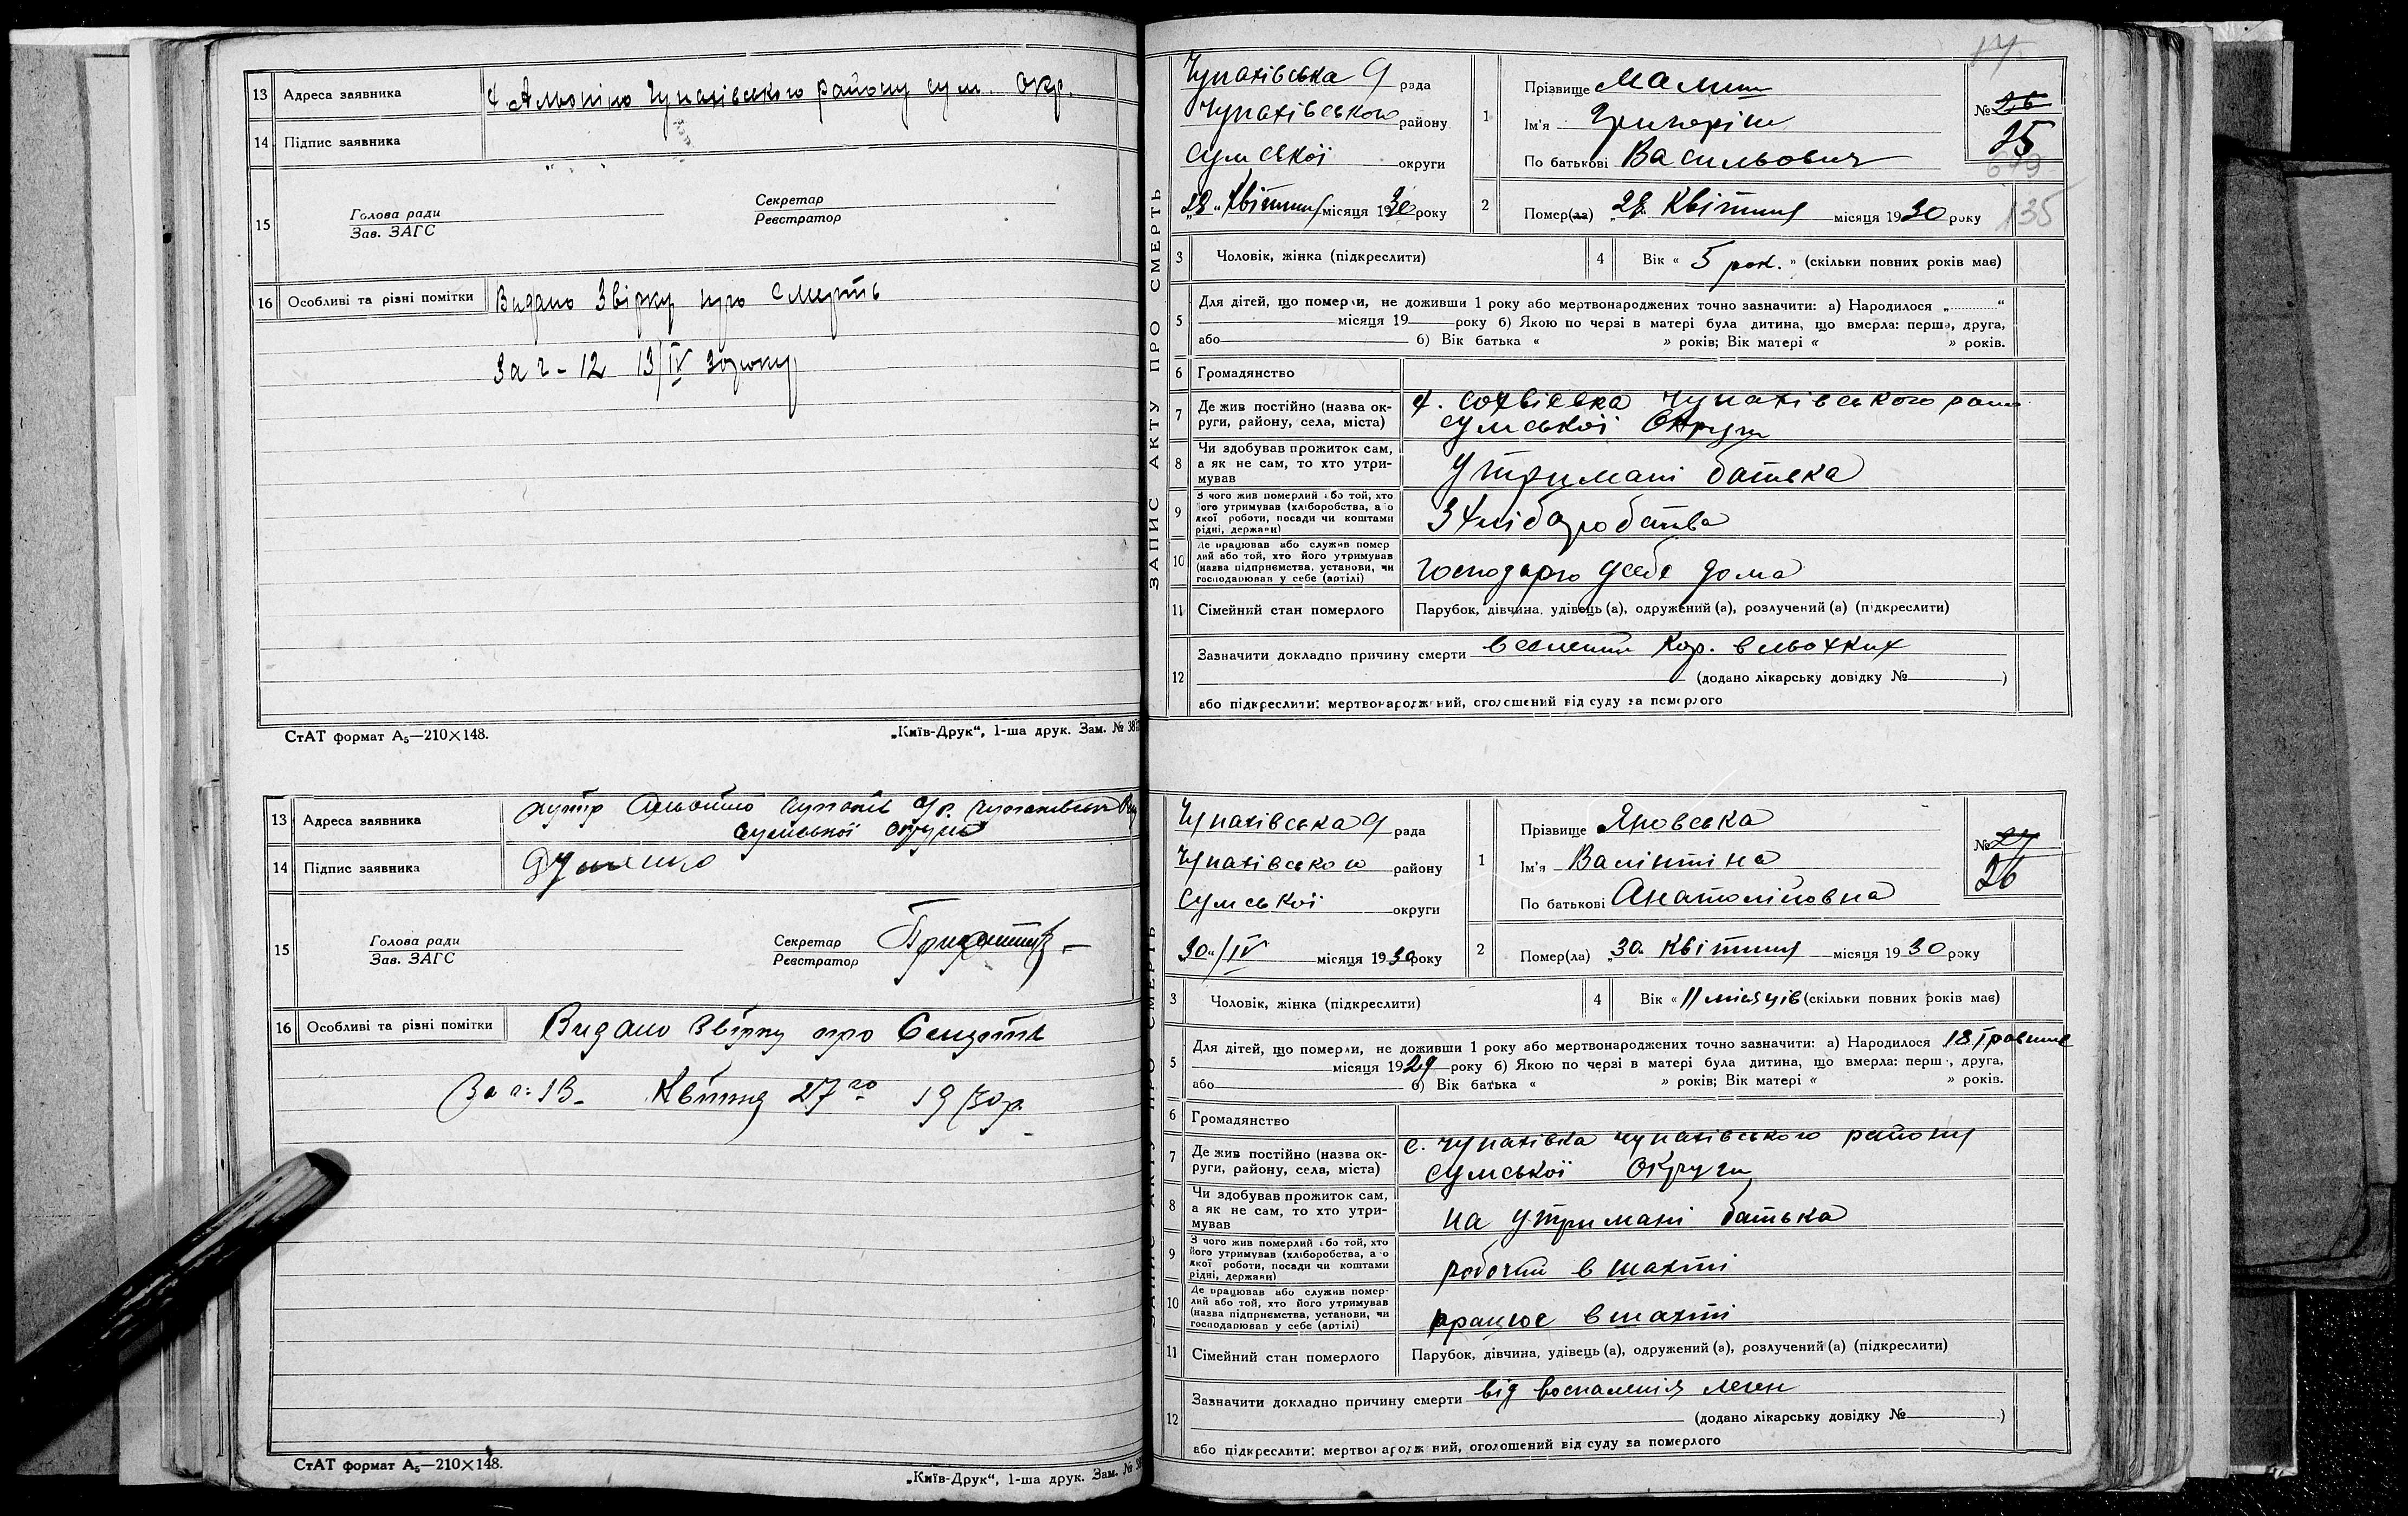 13 Адреса заявника
Чупахівського району сум. Окр.
14 Підпис заявника
15 Голова ради
Зав. ЗАГС
Секретар
Реєстратор
16 Особливі та різні помітки Видано Звірку про Смерть
За ч-12 13/IV 30 року
СтАТ формат А5—210×148.
„Київ-Друк“, 1-ша друк. Зам. №
13 Адреса заявника хутір
Сумської округи
14 Підпис заявника
15 Голова ради
Зав. ЗАГС
Секретар
Реєстратор
16 Особливі та різні помітки Видано Звірку про Смерть
За ч: 13 - Квітня 27го 1930 р.
СтАТ формат А5—210×148.
„Київ-Друк“, 1-ша друк. Зам. №
17
ЗАПИС АКТУ ПРО СМЕРТЬ
Чупахівська рада
Чупахівського району
Сумської округи
„28“ Квітня місяця 1930 року
1 Прізвище Малиш
Ім'я Григорій
По батькові Васильович
№ 26
25
679
135
2 Помер(ла) „28“ Квітня місяця 1930 року
3 Чоловік, жінка (підкреслити)
4 Вік « 5 рок. » (скільки повних років має)
5 Для дітей, що померли, не доживши 1 року або мертвонароджених точно зазначити: а) Народилося „ “
місяця 19 року б) Якою по черзі в матері була дитина, що вмерла: перша, друга,
або 6) Вік батька « » років; Вік матері « » років.
6 Громадянство
7 Де жив постійно (назва округи, району, села, міста) х. Софвієвка Чупахівського
Сумської Округи
8 Чи здобував прожиток сам, а як не сам, то хто утримував
Утримані батька
9 З чого жив померлий або той, хто його утримував (хліборобства, або якої роботи, посади чи коштами рідні, держави)
З Хліборобства
10 Де працював або служив помер лий або той, хто його утримував (назва підприємства, установи, чи господарював у себе (артілі)
Господарю усебе дома
11 Сімейний стан померлого Парубок, дівчина, удівець (а), одружений (а), розлучений (а) (підкреслити)
12 Зазначити докладно причину смерти
(додано лікарську довідку № )
або підкреслити: мертвонароджений, оголошений від суду за померлого
ЗАПИС АКТУ ПРО СМЕРТЬ
Чупахівська рада
Чупахівського району
Сумської округи
„30“/IV місяця 1930 року
1 Прізвище Яновська
Ім'я Валінтіна
По батькові Анатоліновна
№ 27
26
2 Помер(ла) „30“ Квітня місяця 1930 року
3 Чоловік, жінка (підкреслити)
4 Вік « 11 місяців (скільки повних років має)
5 Для дітей, що померли, не доживши 1 року або мертвонароджених точно зазначити: а) Народилося 18 Травня
місяця 1929 року б) Якою по черзі в матері була дитина, що вмерла: перша, друга,
або 6) Вік батька « » років; Вік матері « » років.
6 Громадянство
7 Де жив постійно (назва округи, району, села, міста) с. Чупахівка Чупахівського району
Сумської Округи
8 Чи здобував прожиток сам, а як не сам, то хто утримував
на утримані батька
9 З чого жив померлий або той, хто його утримував (хліборобства, або якої роботи, посади чи коштами рідні, держави)
робочий в шахті
10 Де працював або служив помер- лий або той, хто його утримував (назва підприємства, установи, чи господарював у себе (артілі)
працює в шахті
11 Сімейний стан померлого Парубок, дівчина, удівець (а), одружений (а), розлучений (а) (підкреслити)
12 Зазначити докладно причину смерти від воспаленія леген
(додано лікарську довідку № )
або підкреслити: мертвонароджений, оголошений від суду за померлого